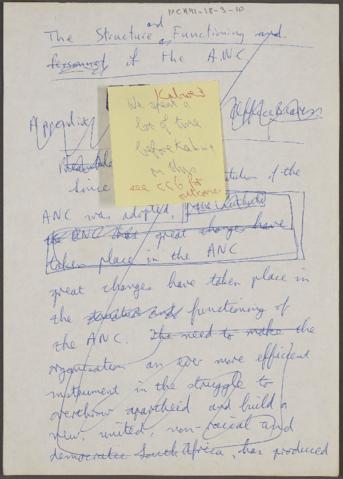 MCH91-18-3-10
The Structure and Functioning and
personnel of the ANC
Kabwe
We spent a
lot of time
before Kabwe
on this
see CC6 for
outcome
Appendix
Preamble
Since
of the
ANC was adopted,
the ANC has great changes have
taken place in the ANC
great changes have taken place in
the structure and functioning of
the ANC. The need to make the
organisation an ever more efficient
instrument in the struggle to
overthrow apartheid and build a
new, united, non-racial and
democratic South Africa, has produced